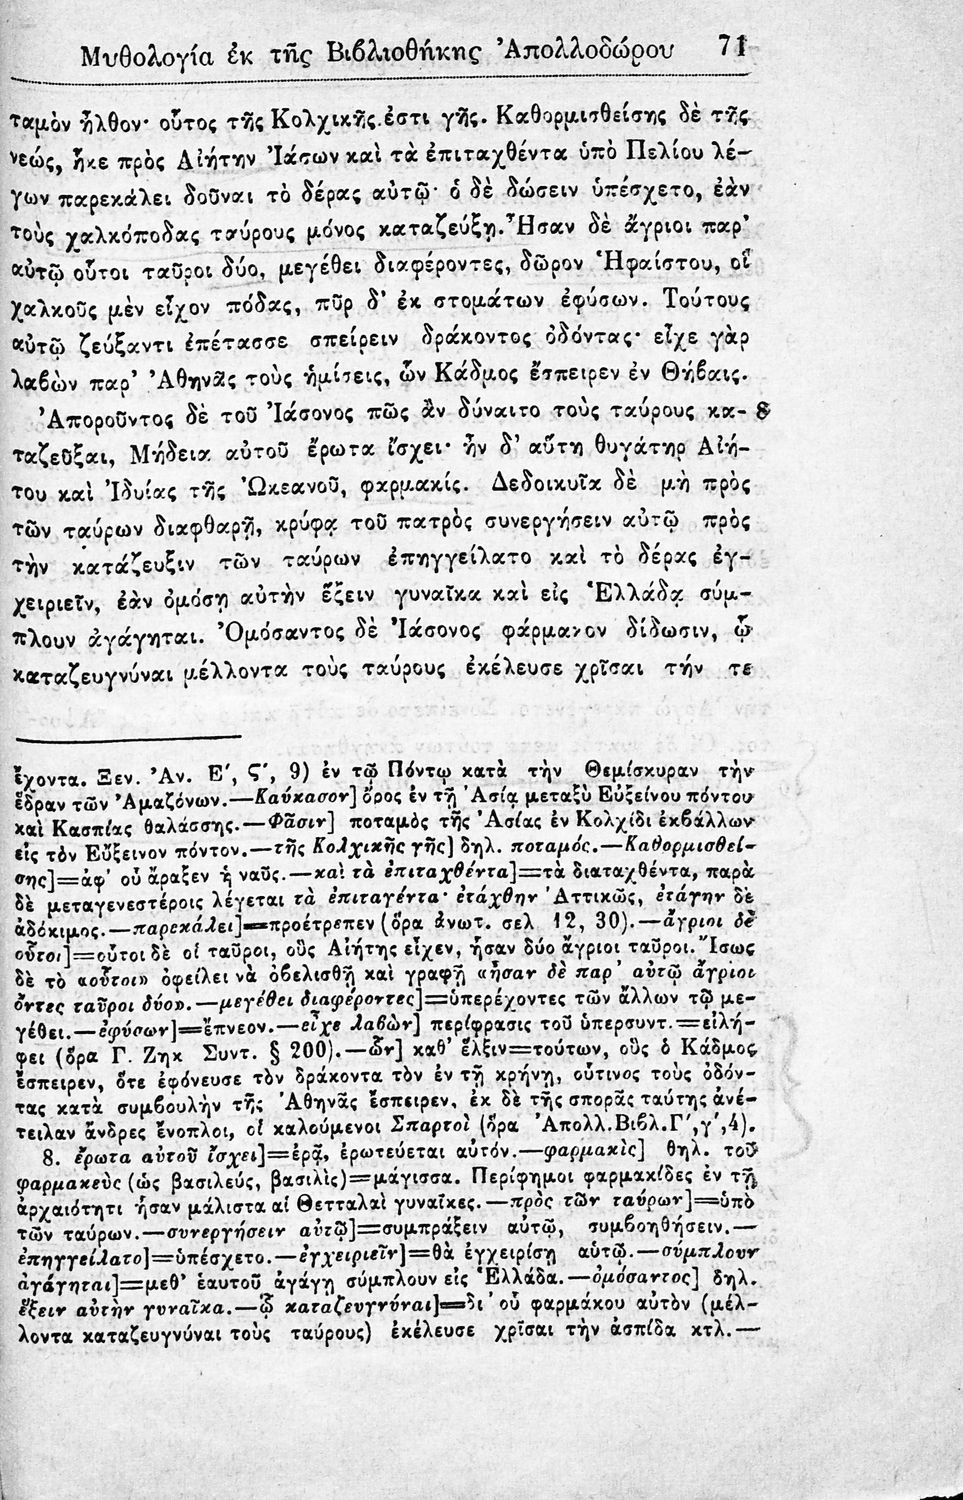 Μυθολογία ἐκ τῆς Βιβλιοθήκης Ἀπολλοδώρου 71
ταμὸν ἦλθον· οὗτος τῆς Κολχικῆς ἐστι γῆς. Καθορμισθείσης δὲ τῆς
νεώς, ἧκε πρὸς Αἰήτην Ἰάσων καὶ τὰ ἐπιταχθέντα ὑπὸ Πελίου λέ-
γων παρεκάλει δοῦναι τὸ δέρας αὐτῷ· ὁ δὲ δώσειν ὑπέσχετο, ἐὰν
τοὺς χαλκόποδας ταύρους μόνος καταζεύξῃ. Ἦσαν δὲ ἄγριοι παρ’
αὐτῷ οὗτοι ταῦροι δύο, μεγέθει διαφέροντες, δῶρον Ἡφαίστου, οἳ
χαλκοῦς μὲν εἶχον πόδας, πῦρ δ’ ἐκ στομάτων ἐφύσων. Τούτους
αὐτῷ ζεύξαντι ἐπέτασσε σπείρειν δράκοντος ὀδόντας· εἶχε γὰρ
λαβὼν παρ’ Ἀθηνᾶς τοὺς ἡμίσεις, ὧν Κάδμος ἔσπειρεν ἐν Θήβαις.
Ἀποροῦντος δὲ τοῦ Ἰάσονος πῶς ἂν δύναιτο τοὺς ταύρους κα- 8
ταζεῦξαι, Μήδεια αὐτοῦ ἔρωτα ἴσχει· ἦν δ’ αὕτη θυγάτηρ Αἰή-
του καὶ Ἰδυίας τῆς Ὠκεανοῦ, φαρμακίς. Δεδοικυῖα δὲ μὴ πρὸς
τῶν ταύρων διαφθαρῇ, κρύφα τοῦ πατρὸς συνεργήσειν αὐτῷ πρὸς
τὴν κατάζευξιν τῶν ταύρων ἐπηγγείλατο καὶ τὸ δέρας ἐγ-
χειριεῖν, ἐὰν ὀμόσῃ αὐτὴν ἕξειν γυναῖκα καὶ εἰς Ἑλλάδα σύμ-
πλουν ἀγάγηται. Ὀμόσαντος δὲ Ἰάσονος φάρμακον δίδωσιν, ᾧ
καταζευγνύναι μέλλοντα τοὺς ταύρους ἐκέλευσε χρῖσαι τήν τε
ἔχοντα. Ξεν. Ἀν. Ε′, Ϛ′, 9) ἐν τῷ Πόντῳ κατὰ τὴν Θεμίσκυραν τὴν
ἕδραν τῶν Ἀμαζόνων.—Καύκασον] ὄρος ἐν τῇ Ἀσίᾳ μεταξὺ Εὐξείνου πόντου
καὶ Κασπίας θαλάσσης.—Φᾶσιν] ποταμὸς τῆς Ἀσίας ἐν Κολχίδι ἐκβάλλων
εἰς τὸν Εὔξεινον πόντον.—τῆς Κολχικῆς γῆς] δηλ. ποταμός.—Καθορμισθεί-
σης]=ἀφ’ οὗ ἄραξεν ἡ ναῦς.—καὶ τὰ ἐπιταχθέντα]=τὰ διαταχθέντα, παρὰ
δὲ μεταγενεστέροις λέγεται τὰ ἐπιταγέντα· ἐτάχθην Ἀττικῶς, ἐτάγην δὲ
ἀδόκιμος.—παρεκάλει]=προέτρεπεν (ὅρα ἀνωτ. σελ 12, 30).—ἄγριοι δὲ
οὗτοι]=οὗτοι δὲ οἱ ταῦροι, οὓς Αἰήτης εἶχεν, ἦσαν δύο ἄγριοι ταῦροι. Ἴσως
δὲ τὸ «οὗτοι» ὀφείλει νὰ ὀβελισθῇ καὶ γραφῇ «ἦσαν δὲ παρ’ αὐτῷ ἄγριοι
ὄντες ταῦροι δύο».—μεγέθει διαφέροντες]=ὑπερέχοντες τῶν ἄλλων τῷ με-
γέθει.—ἐφύσων]=ἔπνεον.—εἶχε λαβὼν] περίφρασις τοῦ ὑπερσυντ.=εἰλή-
φει (ὅρα Γ. Ζηκ Συντ. § 200).—ὧν] καθ’ ἕλξιν=τούτων, οὓς ὁ Κάδμος
ἔσπειρεν, ὅτε ἐφόνευσε τὸν δράκοντα τὸν ἐν τῇ κρήνῃ, οὗτινος τοὺς ὀδόν-
τας κατὰ συμβουλὴν τῆς Ἀθηνᾶς ἔσπειρεν, ἐκ δὲ τῆς σπορᾶς ταύτης ἀνέ-
τειλαν ἄνδρες ἔνοπλοι, οἱ καλούμενοι Σπαρτοὶ (ὅρα Ἀπολλ.Βιβλ.Γ′,γ′,4).
8. ἔρωτα αὐτοῦ ἴσχει]=ἐρᾷ, ἐρωτεύεται αὐτόν.—φαρμακὶς] θηλ. τοῦ
φαρμακεὺς (ὡς βασιλεύς, βασιλὶς)=μάγισσα. Περίφημοι φαρμακίδες ἐν τῇ
ἀρχαιότητι ἦσαν μάλιστα αἱ Θετταλαὶ γυναῖκες.—πρὸς τῶν ταύρων]=ὑπὸ
τῶν ταύρων.—συνεργήσειν αὐτῷ]=συμπράξειν αὐτῷ, συμβοηθήσειν.—
ἐπηγγείλατο]=ὑπέσχετο.—ἐγχειριεῖν]=θὰ ἐγχειρίσῃ αὐτῷ.—σύμπλουν
ἀγάγηται]=μεθ’ ἑαυτοῦ ἀγάγῃ σύμπλουν εἰς Ἑλλάδα.—ὀμόσαντος] δηλ.
ἕξειν αὐτὴν γυναῖκα.—ᾧ καταζευγνύναι]=δι’ οὗ φαρμάκου αὐτὸν (μέλ-
λοντα καταζευγνύναι τοὺς ταύρους) ἐκέλευσε χρῖσαι τὴν ἀσπίδα κτλ.—